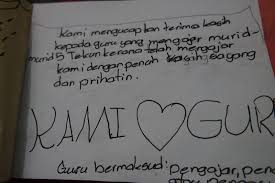 Kami mengucapkan terima kasih
kepada guru yang mengajar murid-
murid 5 Tekun kerana telah mengajar
kami dengan penoh kasih sayang
dan prihatin.
KAMI ♡ GUR
Guru bermaksud: Pengajar, pen